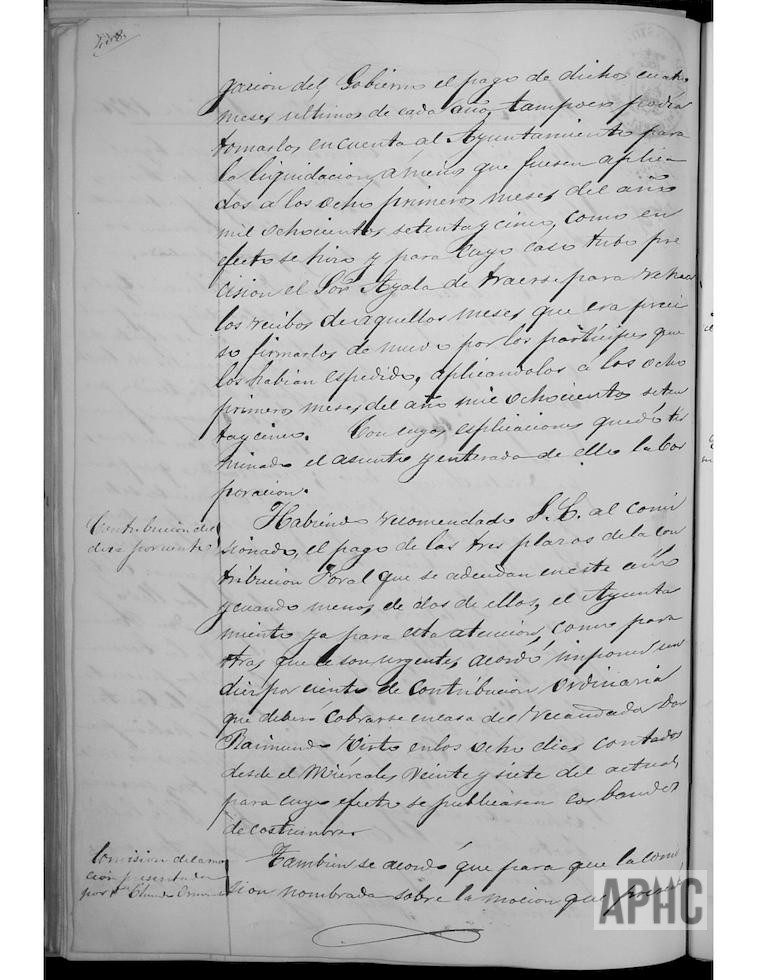 gacion del Gobierno el pago de dichos cuatro
meses ultimos de cada año, tampoco podia
tomarlos en cuenta al Ayuntamiento para
la liquidacion, á menos que fuesen aplica
dos a los ocho primeros meses del año
mil ochocientos setenta y cinco, como en
efecto se hizo y para cuyo caso tubo pre
cision el Sor Ayala de traerse para rehacer
los recibos de aquellos meses que era preci
so firmarlos de nuevo por los partícipes que
los habian espedido, aplicandolos á los ocho
primeros meses del año mil ochocientos seten
ta y cinco. Con cuyas esplicaciones quedó ter
minado el asunto y enterada de ello la Cor
poracion.
Contribucion del
diez por ciento
Habiendo recomendado S.E. al comi
sionado, el pago de las tres plazas de la con
tribucion Foral que se adeudan en este año
y cuando menos de dos de ellos, el Ayunta
miento ya para esta atencion, como para
otras que son urgentes, acordó imponer un
diez por ciento de Contribucion Ordinaria
que deberá cobrarse en casa del Recaudador Don
Raimundo en los ocho dias contados
desde el Miércoles veinte y siete del actual,
para cuyo efecto se publicasen los bandos
de costumbre
Comision de la mo
cion presentada
por Dn Claudio
Tambien se acordó que para que la comi
sion nombrada sobre la mocion que present
APHC